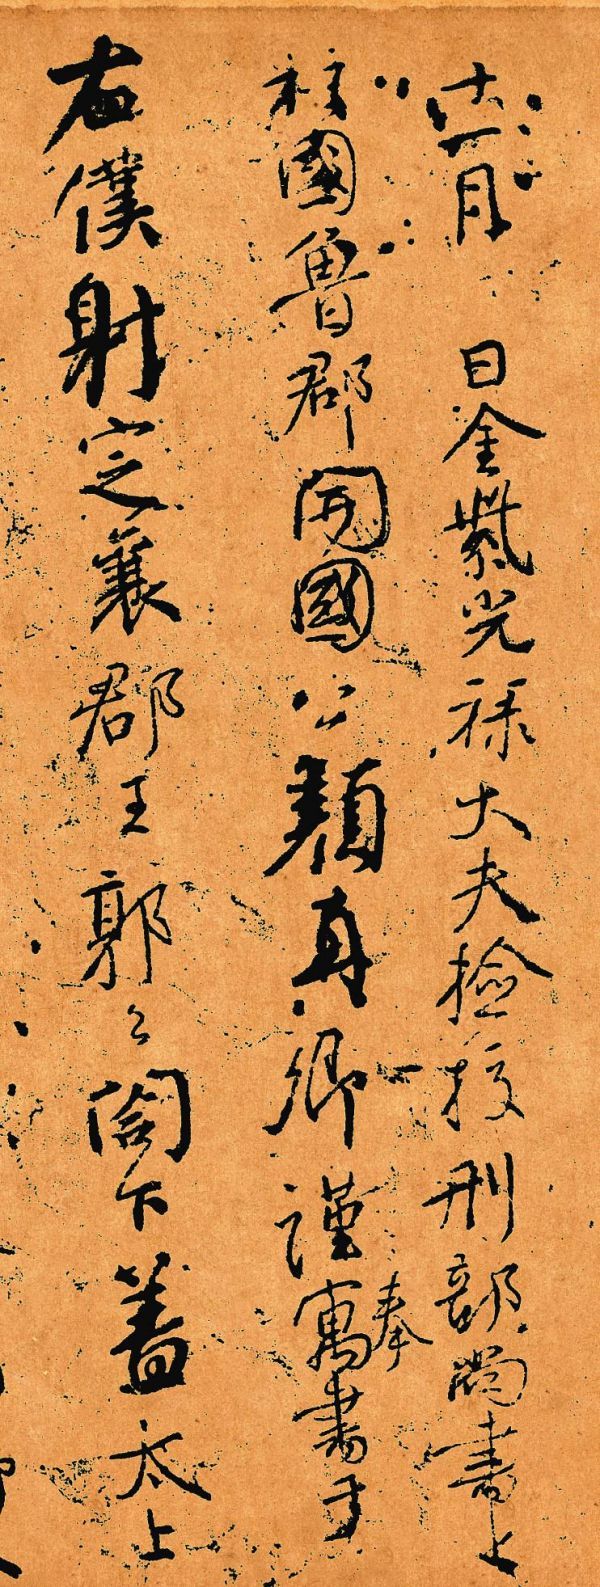 十一月 日金紫光祿大夫檢校刑部尚書上
柱國魯郡開國公顏真卿謹奉寓書于
右僕射定襄郡王郭公閤下蓋太上